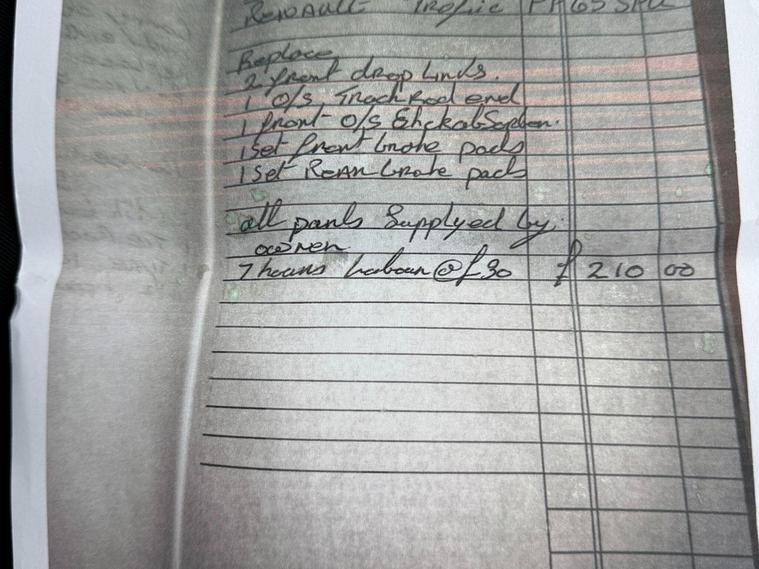 Renault Trafic
Replace
2 front drop links.
1 O/S Track Rod end
1 front O/S Shckabsorber.
1 Set front brake pads
1 Set Rear brake pads
all parts Supplyed by.
owner
7 hours labour @ £30 £ 210 00